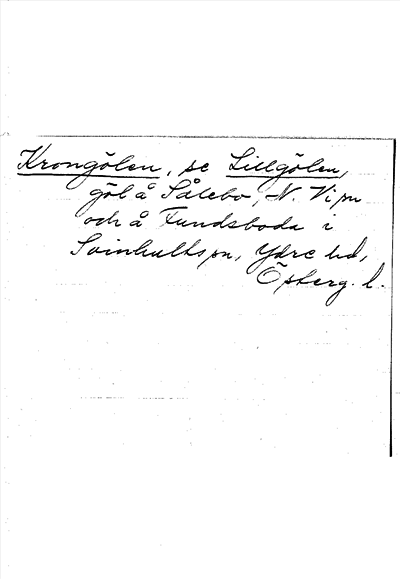 Krongölen, se Lillgölen,
göl å Sålebo, N. Vi pn
och å Fundsboda i
Svinhults pn, Ydre hd,
Östergl.